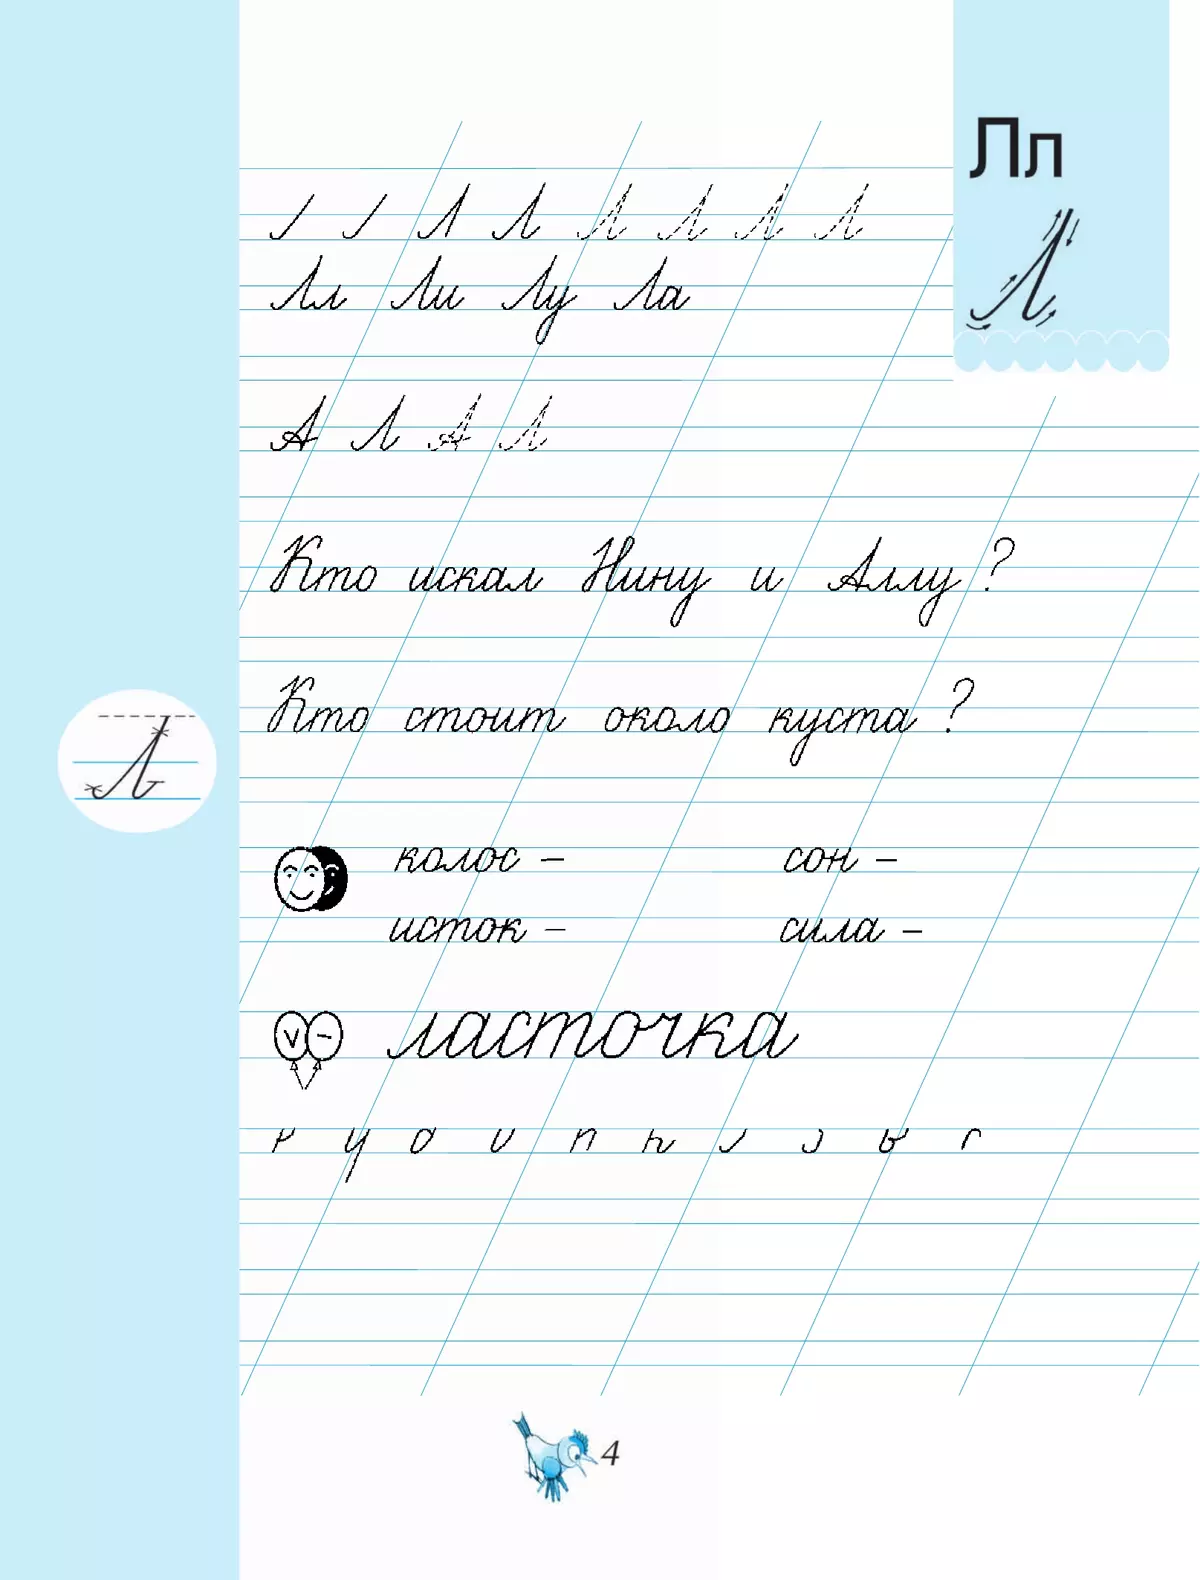 Лл
Л Л Л Л Л Л
Лл Ли Лу Ла
А Л А Л
Кто искал Нину и Аллу ?
Кто стоит около куста ?
Л
колос – сон –
исток – сила –
ласточка
4